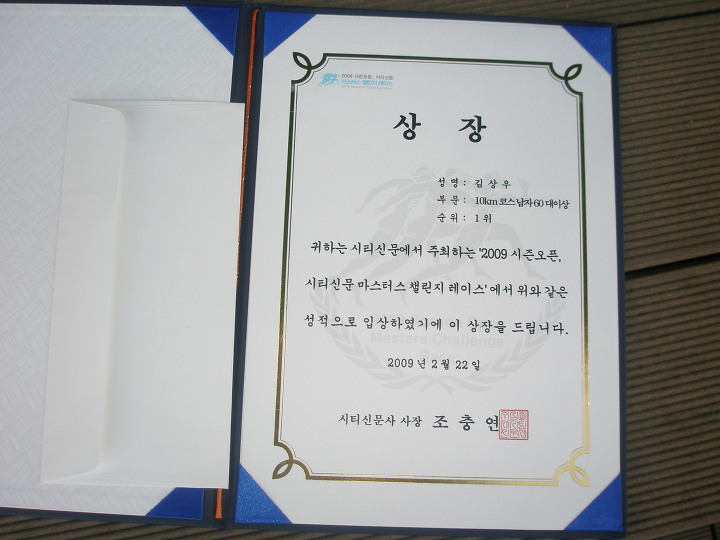 2009 시즌오픈, 시티신문
마스터스 챌린지 레이스
상 장
성 명 : 김 상 우
부 문 : 10km 코스 남자 60 대이상
순 위 : 1 위
귀하는 시티신문에서 주최하는 '2009 시즌오픈,
시티신문 마스터스 챌린지 레이스' 에서 위와 같은
성적으로 입상하였기에 이 상장을 드립니다.
Masters Challenge
2009 년 2 월 22 일
시티신문사 사장 조 충 연